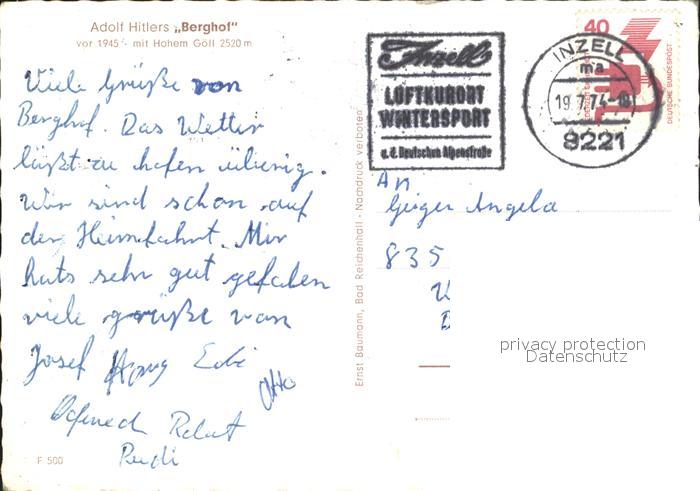 Adolf Hitlers „Berghof"
vor 1945 - mit Hohem Göll 2520 m
Viele Grüße von
Berghof. Das Wetter
läßt zu hofen übrig.
Wir sind schon auf
der Heimfahrt. Mir
hats sehr gut gefalen
viele grüße von
Josef Hans Edi
Otto
Robert
Rudi
F 500
Ernst Baumann, Bad Reichenhall - Nachdruck verboten
Inzell
LUFTKURORT
WINTERSPORT
a. d. Deutschen Alpenstraße
INZELL
ma
19.7.74-18
8221
40
DEUTSCHE BUNDESPOST
An
Geiger Angela
835
privacy protection
Datenschutz